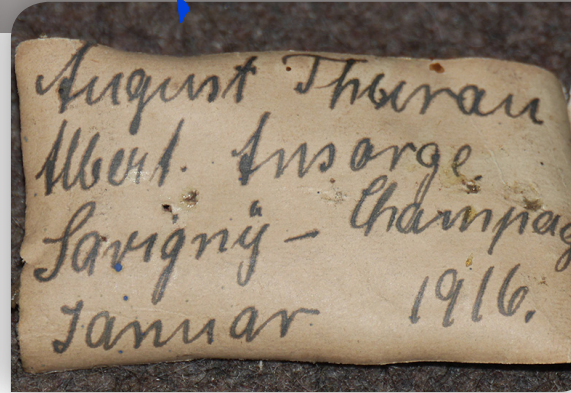 August Thurau
Albert. Ansorge.
Savignÿ – Champag
Januar 1916.